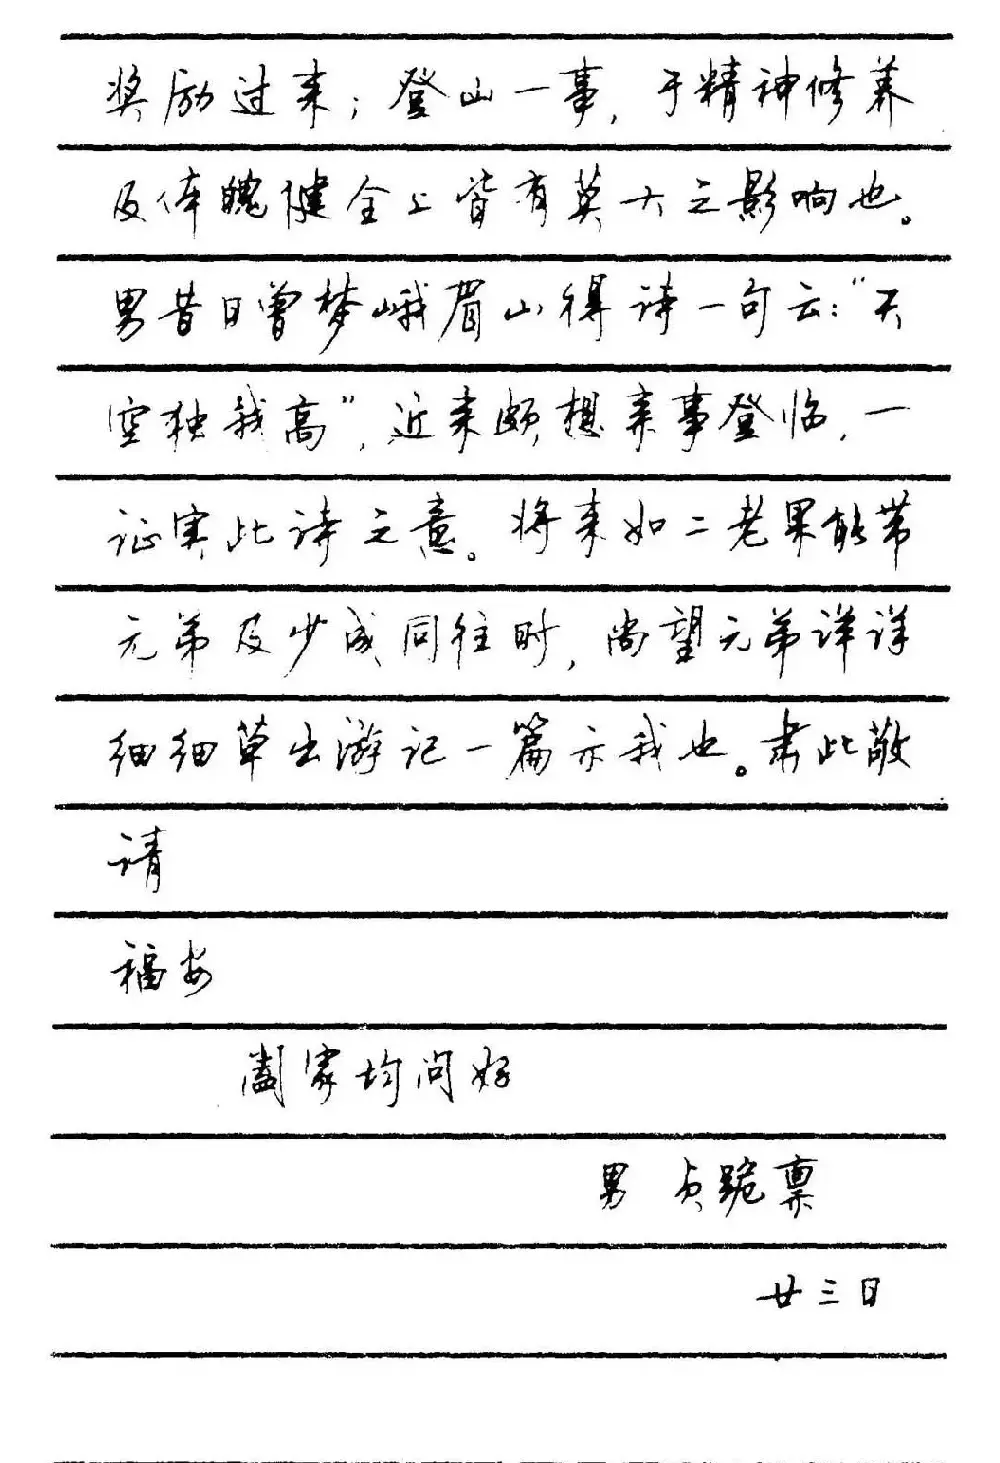 奖励过来；登山一事，于精神修养
及体魄健全上皆有莫大之影响也。
男昔日曾梦峨眉山得诗一句云：“天
空独我高”，近来颇想来事登临，一
证实此诗之意。将来如二老果能带
元弟及少成同往时，尚望元弟详详
细细草出游记一篇示我也。肃此敬
请
福安
阖家均问好
男 贞跪禀
廿三日